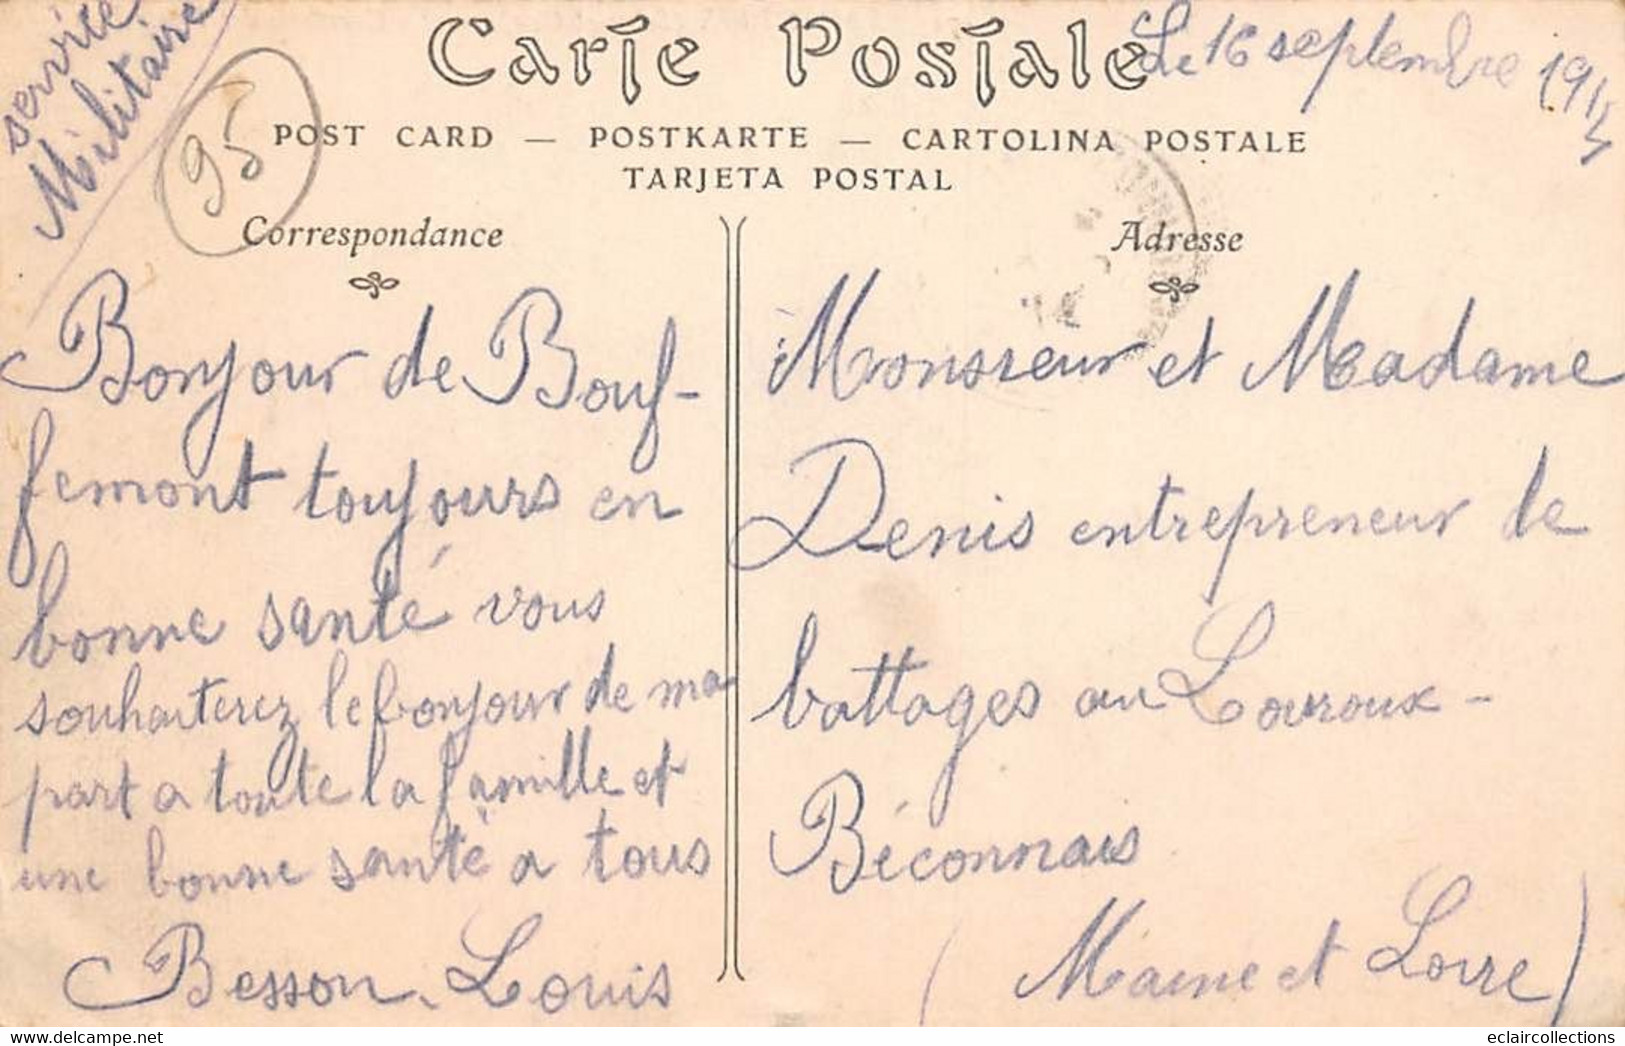 service
Militaire
95
Carte Postale
Le 16 septembre 1914
POST CARD — POSTKARTE — CARTOLINA POSTALE
TARJETA POSTAL
Correspondance
Bonjour de Bouf-
femont toujours en
bonne santé vous
souhaiterez le bonjour de ma
part a toute la famille et
une bonne santé a tous
Besson Louis
Adresse
Monsieur et Madame
Denis entrepreneur de
battages au Louroux-
Béconnais
(Maine et Loire)
eclaircollections